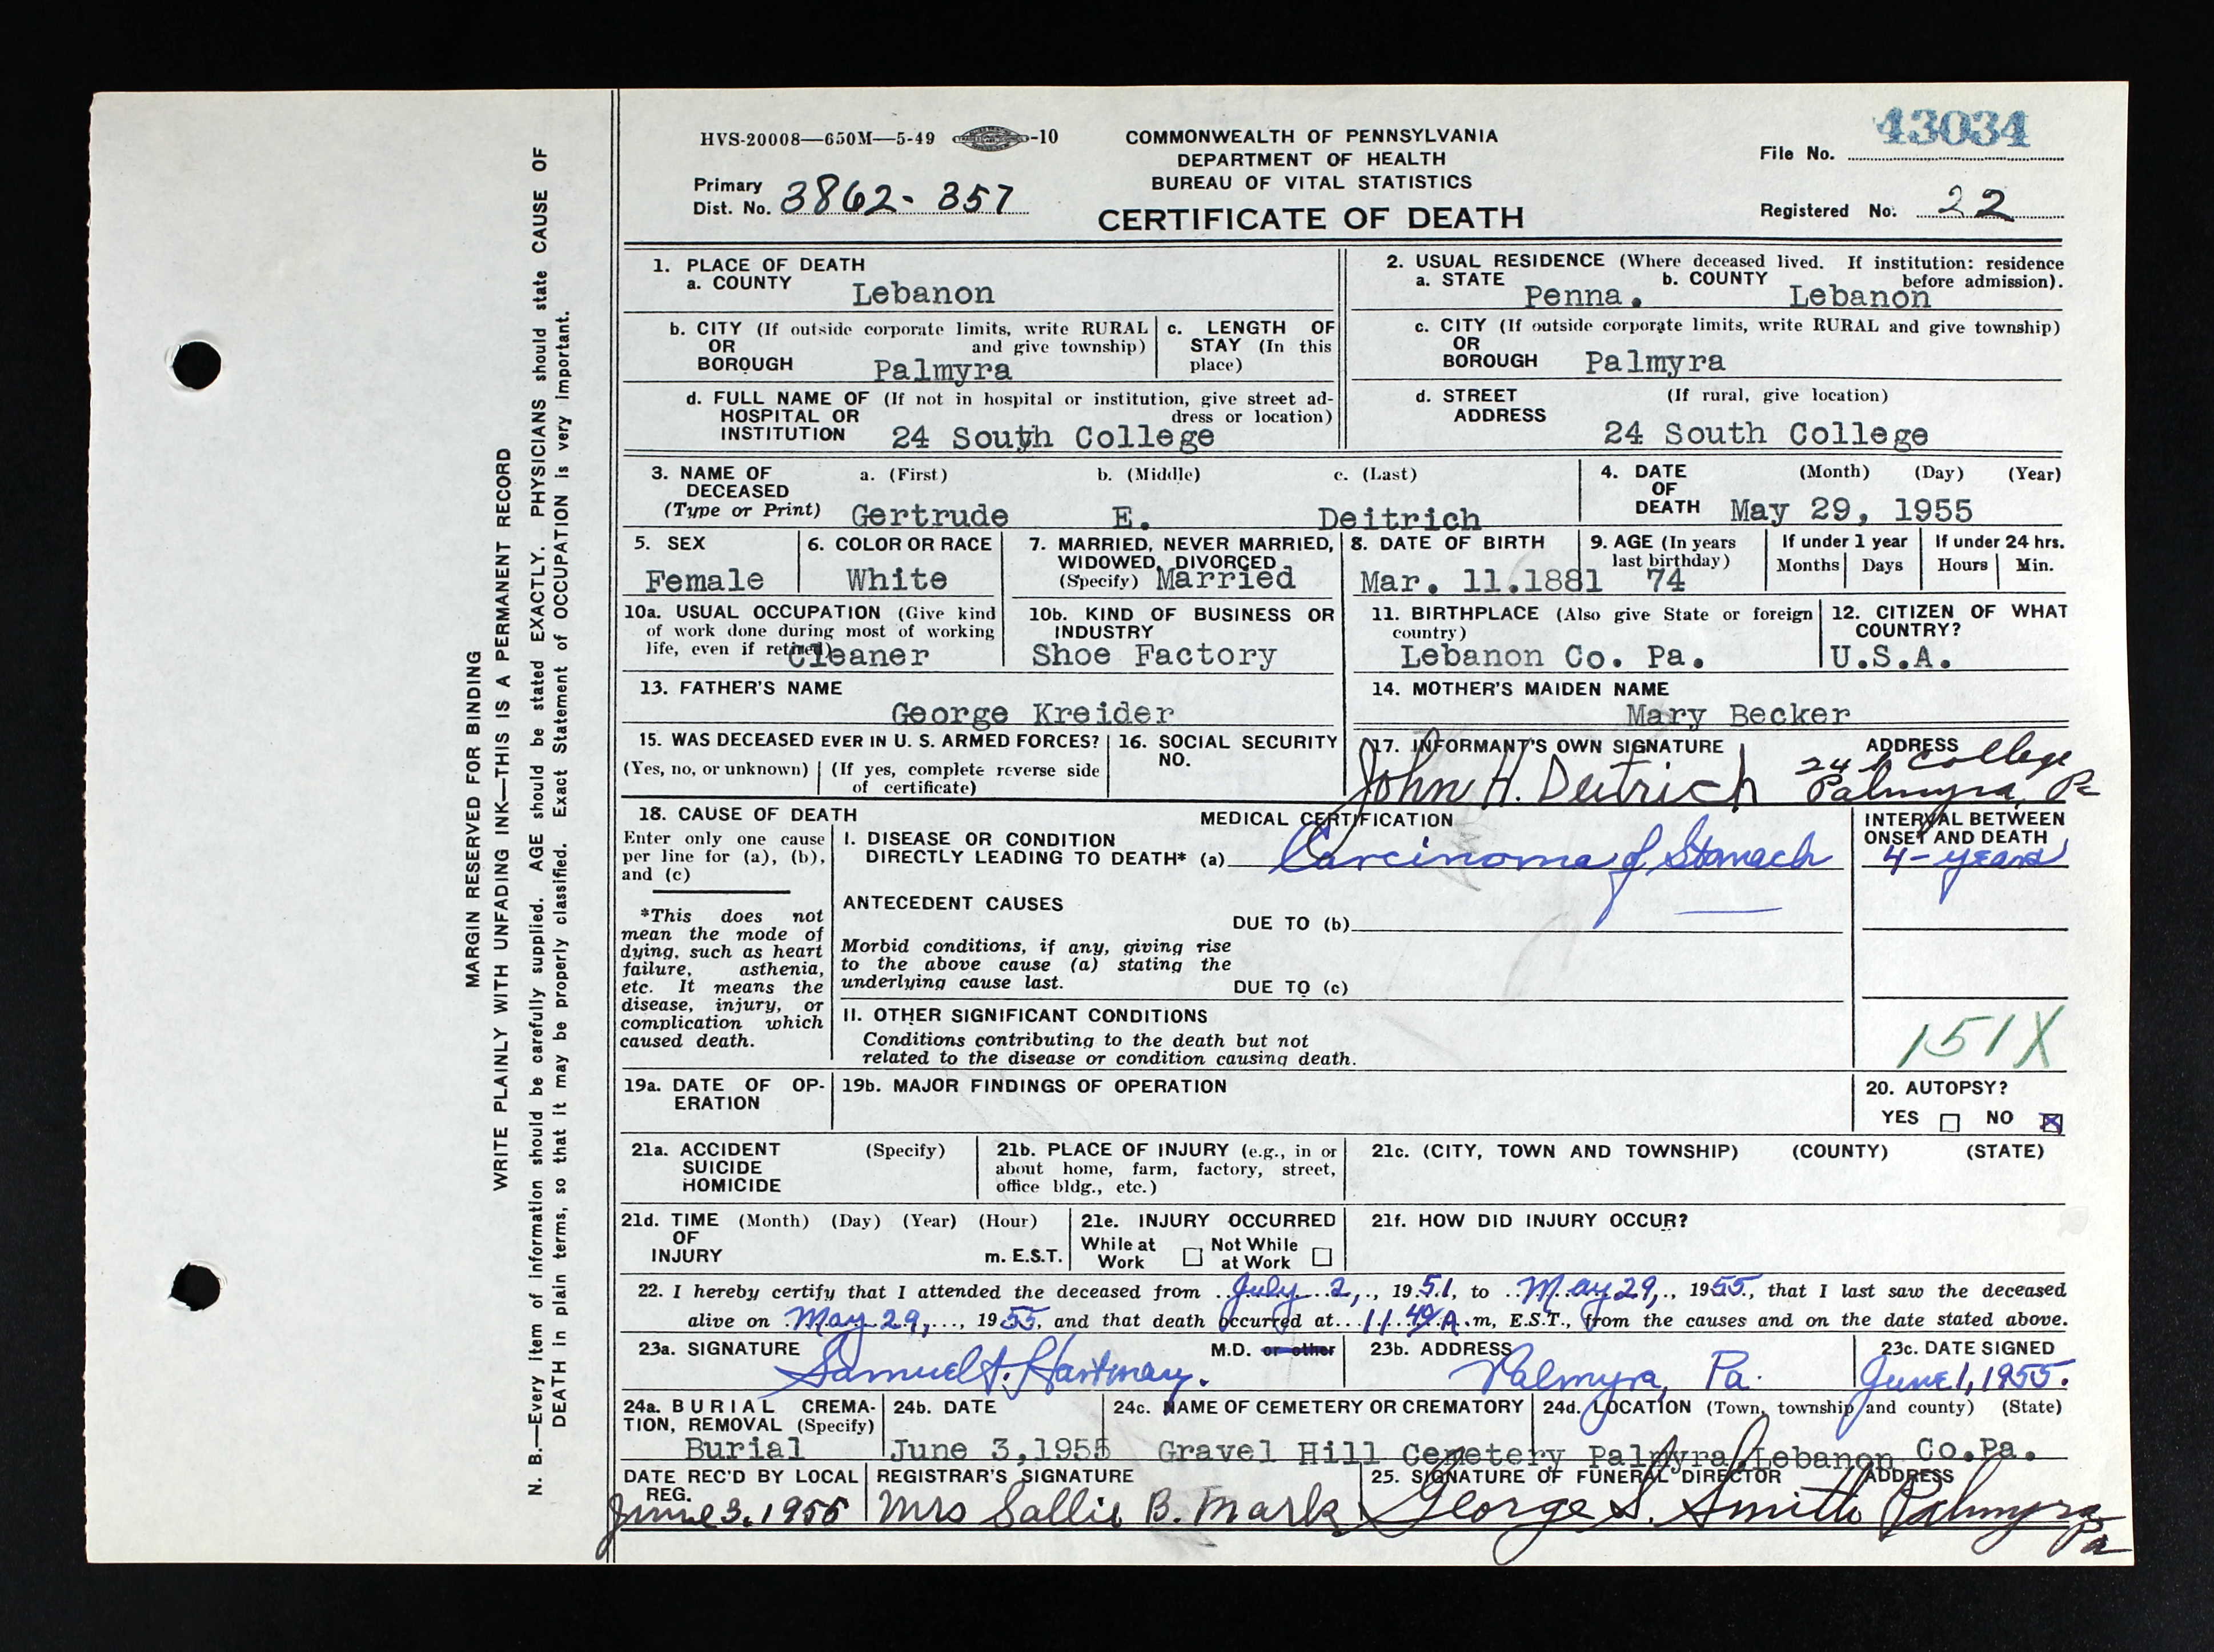 43034
HVS-20008—650M—5-49 -10
COMMONWEALTH OF PENNSYLVANIA
DEPARTMENT OF HEALTH
BUREAU OF VITAL STATISTICS
CERTIFICATE OF DEATH
File No.
Primary
Dist. No. 3862-357
Registered No. 22
MARGIN RESERVED FOR BINDING
WRITE PLAINLY WITH UNFADING INK—THIS IS A PERMANENT RECORD
N. B.—Every item of information should be carefully supplied. AGE should be stated EXACTLY. PHYSICIANS should state CAUSE OF
DEATH in plain terms, so that it may be properly classified. Exact Statement of OCCUPATION is very important.
1. PLACE OF DEATH
a. COUNTY Lebanon
2. USUAL RESIDENCE (Where deceased lived. If institution: residence
before admission).
a. STATE Penna. b. COUNTY Lebanon
b. CITY (If outside corporate limits, write RURAL
OR and give township)
BOROUGH Palmyra
c. LENGTH OF
STAY (In this
place)
c. CITY (If outside corporate limits, write RURAL and give township)
OR
BOROUGH Palmyra
d. FULL NAME OF (If not in hospital or institution, give street ad-
HOSPITAL OR dress or location)
INSTITUTION 24 South College
d. STREET (If rural, give location)
ADDRESS
24 South College
3. NAME OF a. (First) b. (Middle) c. (Last)
DECEASED
(Type or Print) Gertrude E. Deitrich
4. DATE (Month) (Day) (Year)
OF
DEATH May 29, 1955
5. SEX
Female
6. COLOR OR RACE
White
7. MARRIED, NEVER MARRIED,
WIDOWED, DIVORCED
(Specify) Married
8. DATE OF BIRTH
Mar. 11.1881
9. AGE (In years
last birthday)
74
If under 1 year
Months Days
If under 24 hrs.
Hours Min.
10a. USUAL OCCUPATION (Give kind
of work done during most of working
life, even if retired)
Cleaner
10b. KIND OF BUSINESS OR
INDUSTRY
Shoe Factory
11. BIRTHPLACE (Also give State or foreign
country)
Lebanon Co. Pa.
12. CITIZEN OF WHAT
COUNTRY?
U.S.A.
13. FATHER'S NAME
George Kreider
14. MOTHER'S MAIDEN NAME
Mary Becker
15. WAS DECEASED EVER IN U. S. ARMED FORCES?
(Yes, no, or unknown) (If yes, complete reverse side
of certificate)
16. SOCIAL SECURITY
NO.
17. INFORMANT'S OWN SIGNATURE ADDRESS
John H. Deitrich 24 S College
Palmyra, Pa
18. CAUSE OF DEATH
Enter only one cause
per line for (a), (b),
and (c)
*This does not
mean the mode of
dying, such as heart
failure, asthenia,
etc. It means the
disease, injury, or
complication which
caused death.
MEDICAL CERTIFICATION
I. DISEASE OR CONDITION
DIRECTLY LEADING TO DEATH* (a) Carcinoma of Stomach
ANTECEDENT CAUSES
DUE TO (b)
Morbid conditions, if any, giving rise
to the above cause (a) stating the
underlying cause last.
DUE TO (c)
II. OTHER SIGNIFICANT CONDITIONS
Conditions contributing to the death but not
related to the disease or condition causing death.
INTERVAL BETWEEN
ONSET AND DEATH
4-years
151X
19a. DATE OF OP-
ERATION
19b. MAJOR FINDINGS OF OPERATION
20. AUTOPSY?
YES NO X
21a. ACCIDENT (Specify)
SUICIDE
HOMICIDE
21b. PLACE OF INJURY (e.g., in or
about home, farm, factory, street,
office bldg., etc.)
21c. (CITY, TOWN AND TOWNSHIP) (COUNTY) (STATE)
21d. TIME (Month) (Day) (Year) (Hour)
OF
INJURY m. E.S.T.
21e. INJURY OCCURRED
While at Not While
Work at Work
21f. HOW DID INJURY OCCUR?
22. I hereby certify that I attended the deceased from July 2, 1951, to May 29, 1955, that I last saw the deceased
alive on May 29, 1955, and that death occurred at 11:40 A.m, E.S.T., from the causes and on the date stated above.
23a. SIGNATURE M.D. or other
Samuel A. Hartman.
23b. ADDRESS
Palmyra, Pa.
23c. DATE SIGNED
June 1, 1955.
24a. BURIAL CREMA-
TION, REMOVAL (Specify)
Burial
24b. DATE
June 3,1955
24c. NAME OF CEMETERY OR CREMATORY
Gravel Hill Cemetery
24d. LOCATION (Town, township and county) (State)
Palmyra, Lebanon Co.Pa.
DATE REC'D BY LOCAL
REG.
June 3, 1955
REGISTRAR'S SIGNATURE
Mrs Sallie B. Mark
25. SIGNATURE OF FUNERAL DIRECTOR ADDRESS
George S. Smith Palmyra
Pa